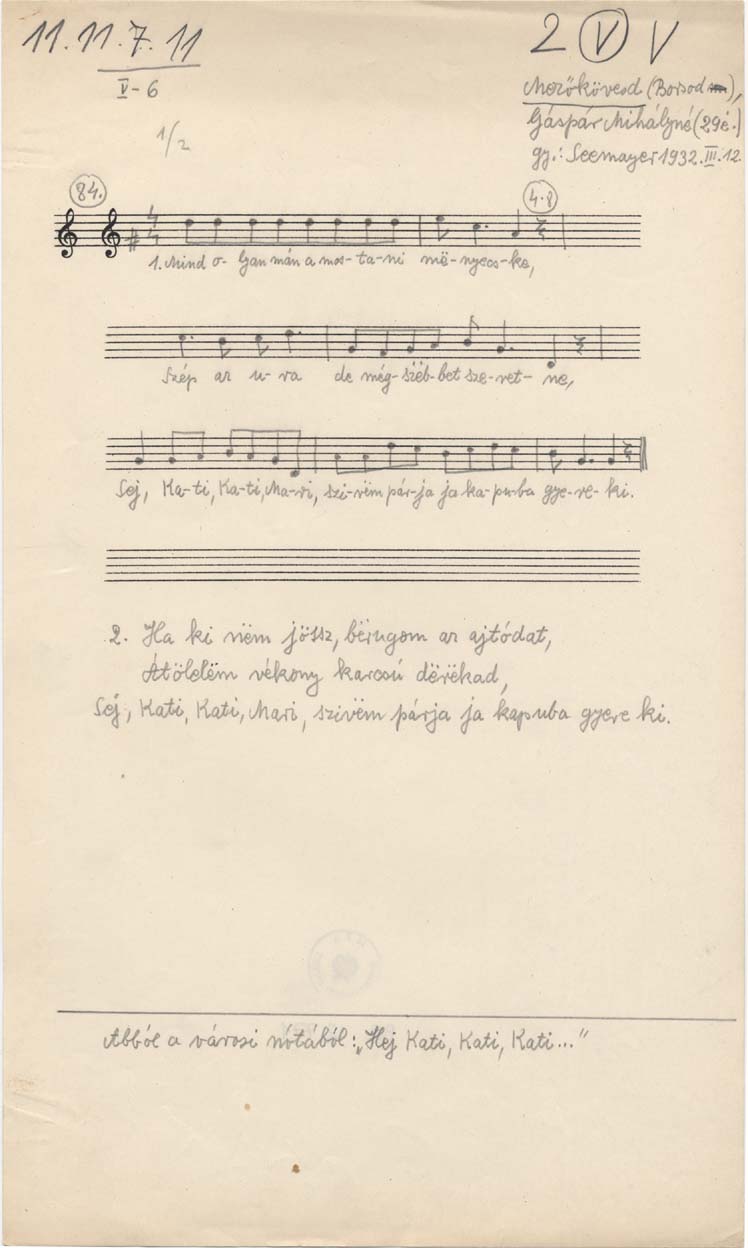 11. 11. 7. 11
V-6
1/2
2 V V
Mezőkövesd (Borsod m),
Gáspár Mihályné (29 é.)
gy.: Seemayer 1932. III. 12.
84.
4-8
4/4
1. Mind o- lyan mán a mos- ta- ni më- nyecs- ke,
Szép az u- ra de még- szëb- bet sze- ret- ne,
Sej, Ka- ti, Ka- ti, Ma- ri, szi- vëm pár- ja ja ka- pu- ba gye- re- ki.
2. Ha ki nëm jössz, bërugom az ajtódat,
Átölelëm vékony karcsú dërëkad,
Sej, Kati, Kati, Mari, szivëm párja ja kapuba gyere ki.
Abból a városi nótából: „Hej Kati, Kati, Kati..."